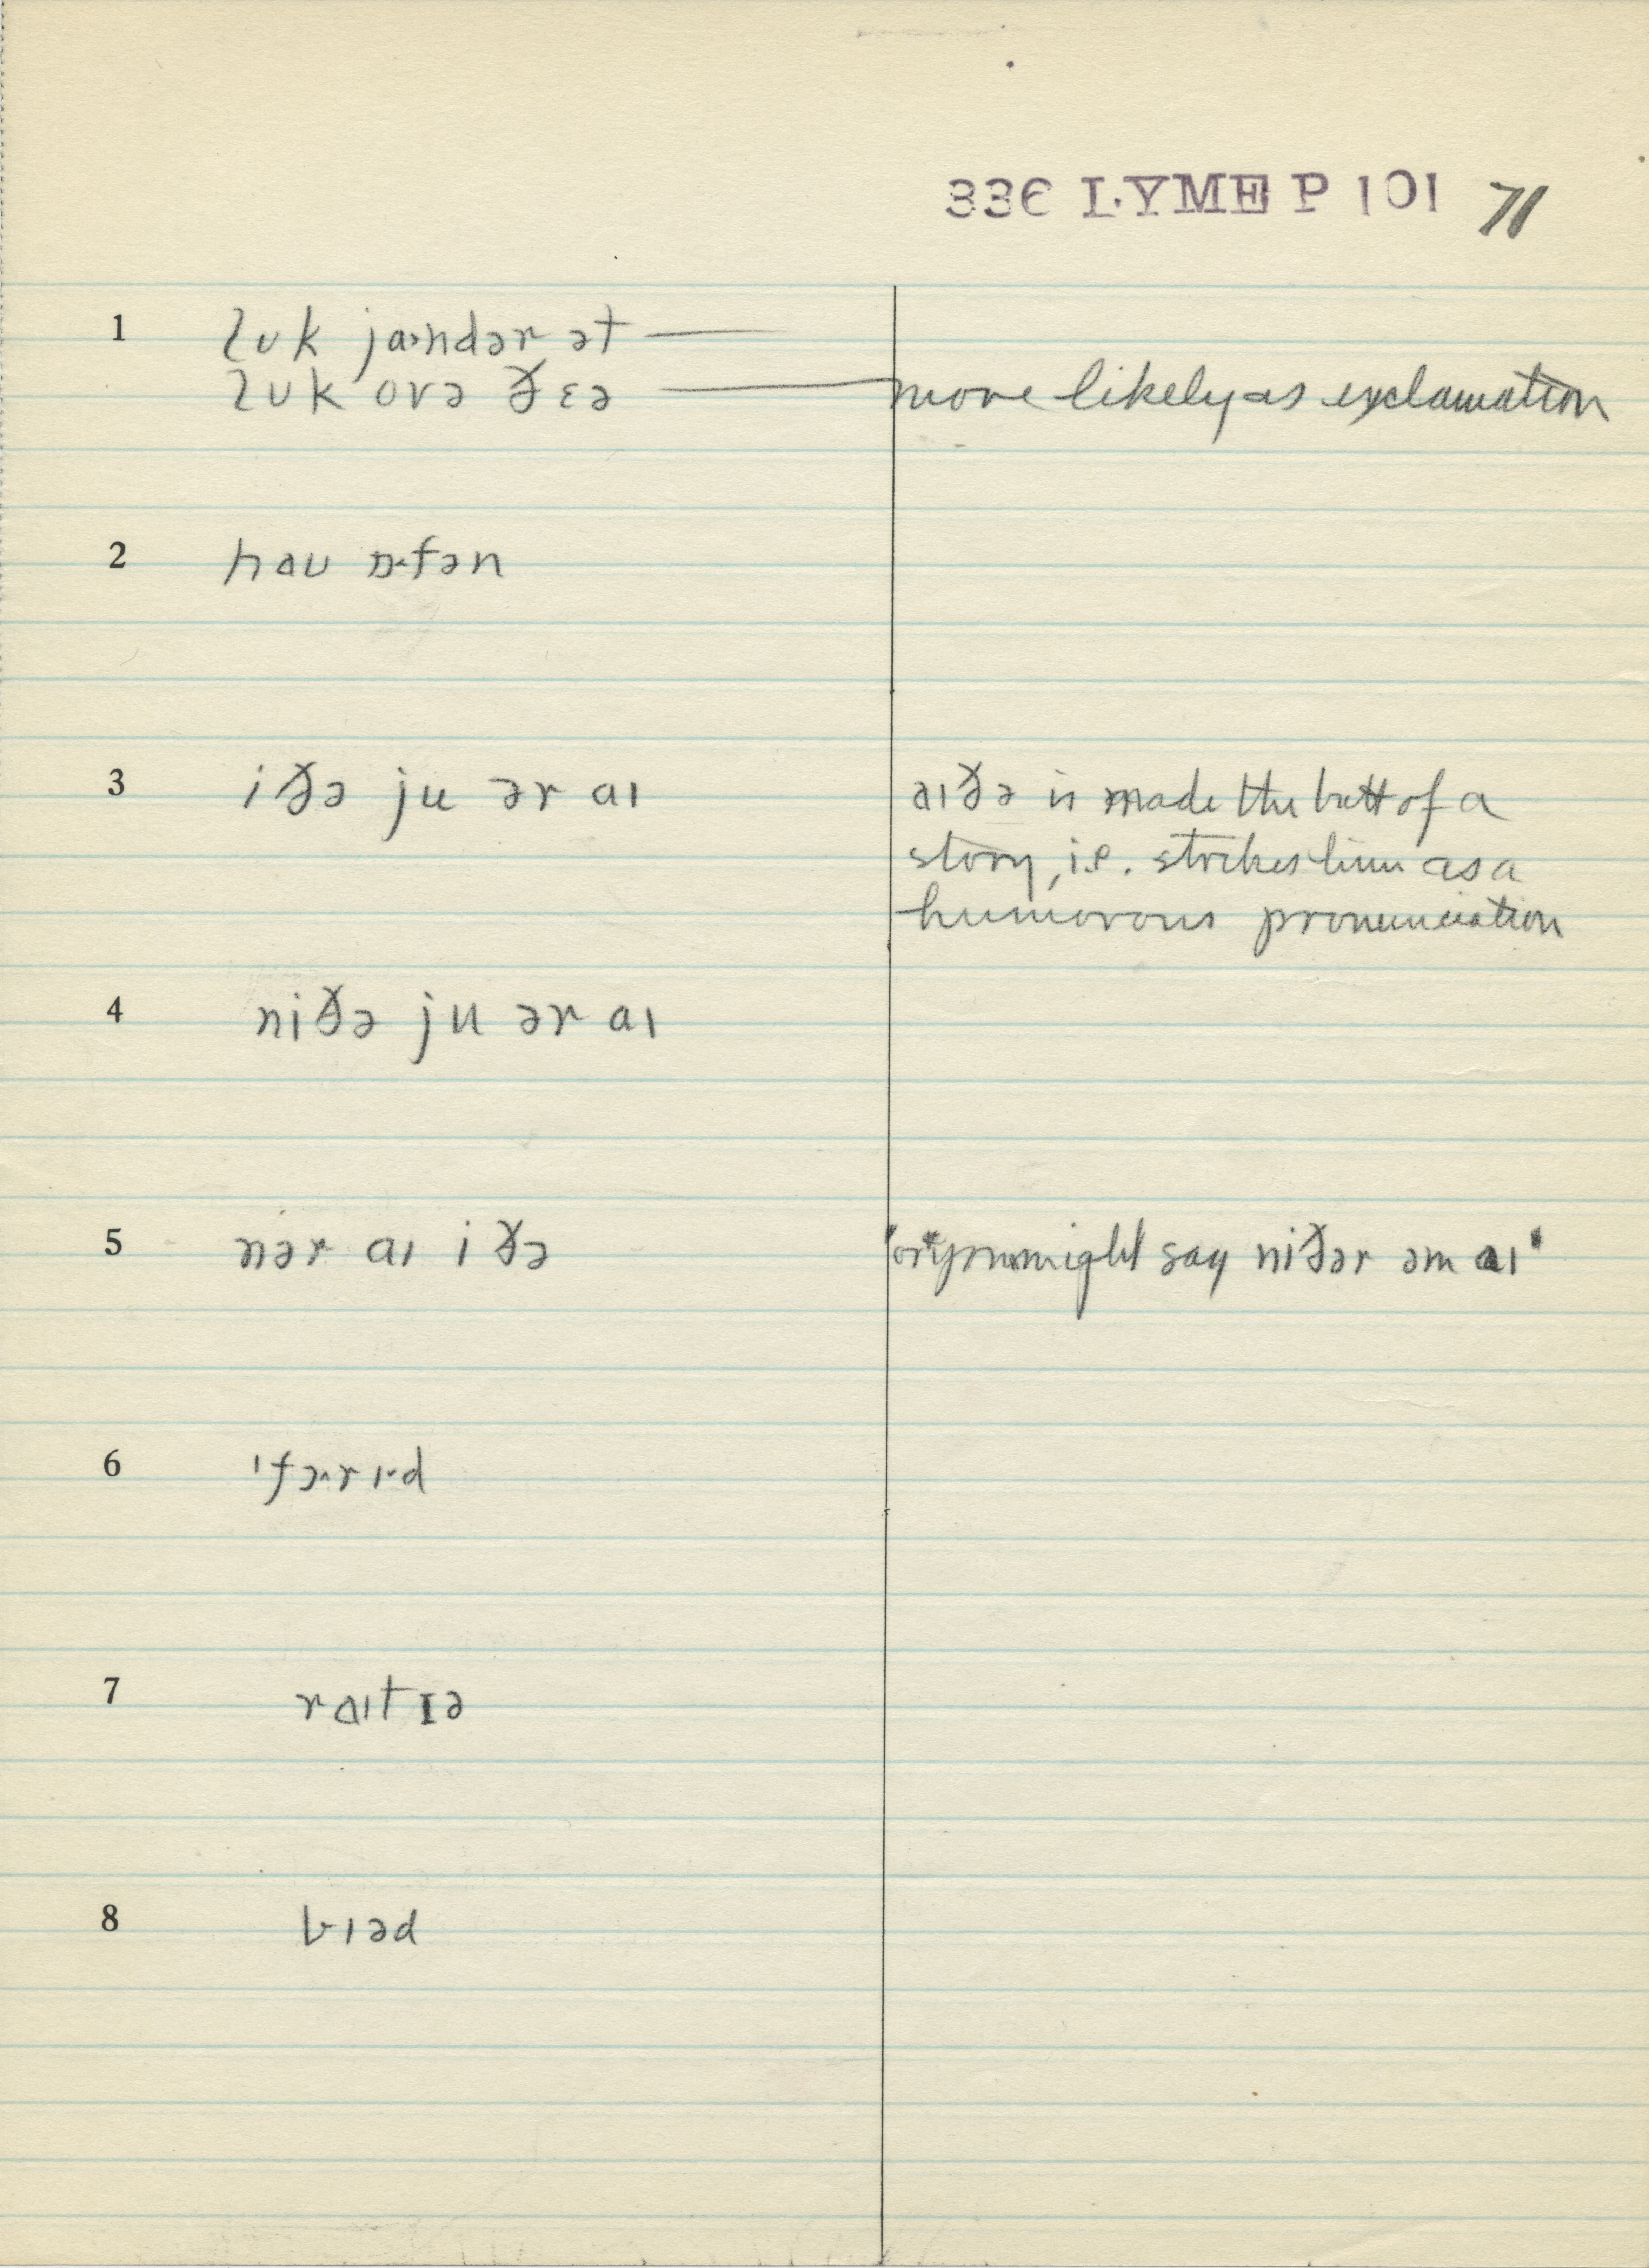 336 LYME P 101 71
1 lʊk ja·ndər ət —
lʊk ovə ðɛə — more likely as exclamation
2 haʊ ɒ·fən
3 iðə ju ər aɪ aɪðə is made the butt of a
story, i.e. strikes him as a
humorous pronunciation
4 niðə ju ər aɪ
5 nər aɪ iðə "or you might say niðər əm aɪ"
6 ˈfɔ·rɪ·d
7 raɪt ɪə
8 bɪəd